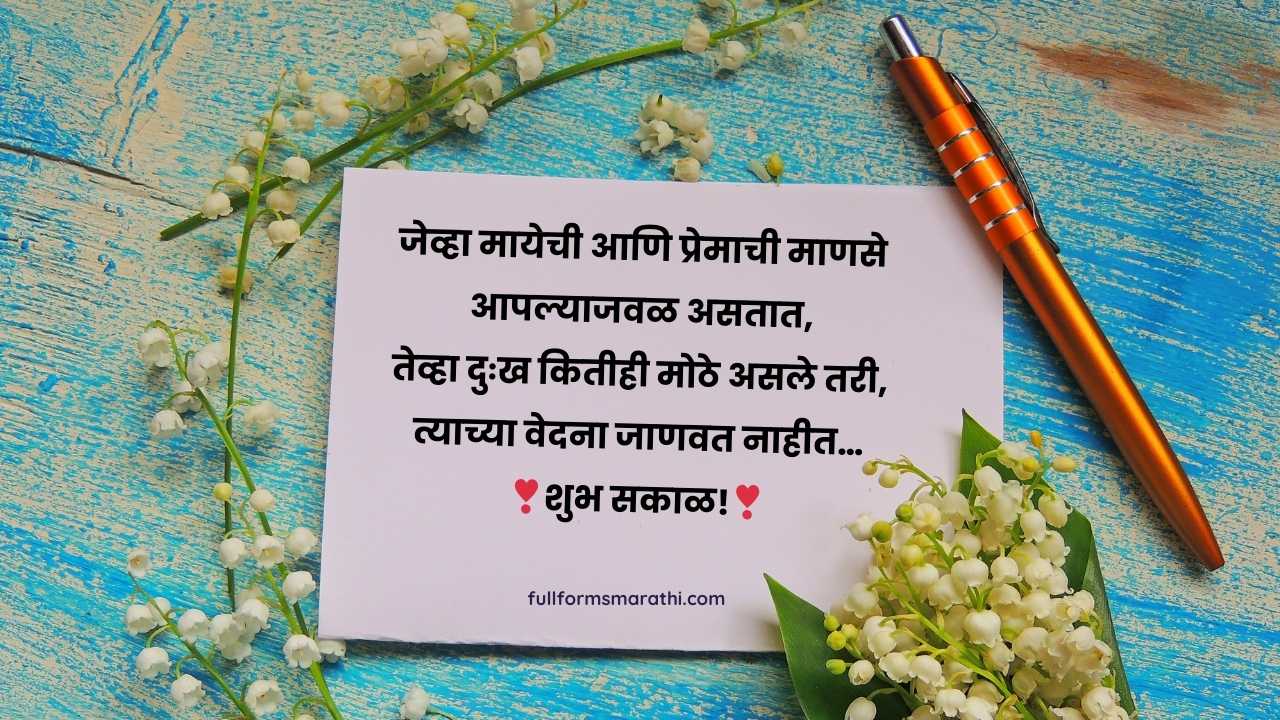 जेव्हा मायेची आणि प्रेमाची माणसे
आपल्याजवळ असतात,
तेव्हा दुःख कितीही मोठे असले तरी,
त्याच्या वेदना जाणवत नाहीत...
❣शुभ सकाळ!❣
fullformsmarathi.com